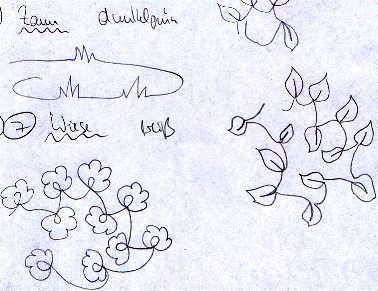 ) Zaun dunkelgrün
7 Wiese weiß